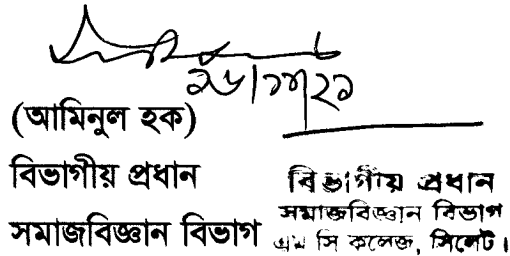 ২৮/১১/২১
(আমিনুল হক)
বিভাগীয় প্রধান
সমাজবিজ্ঞান বিভাগ
বিভাগীয় প্রধান
সমাজবিজ্ঞান বিভাগ
এম সি কলেজ, সিলেট।